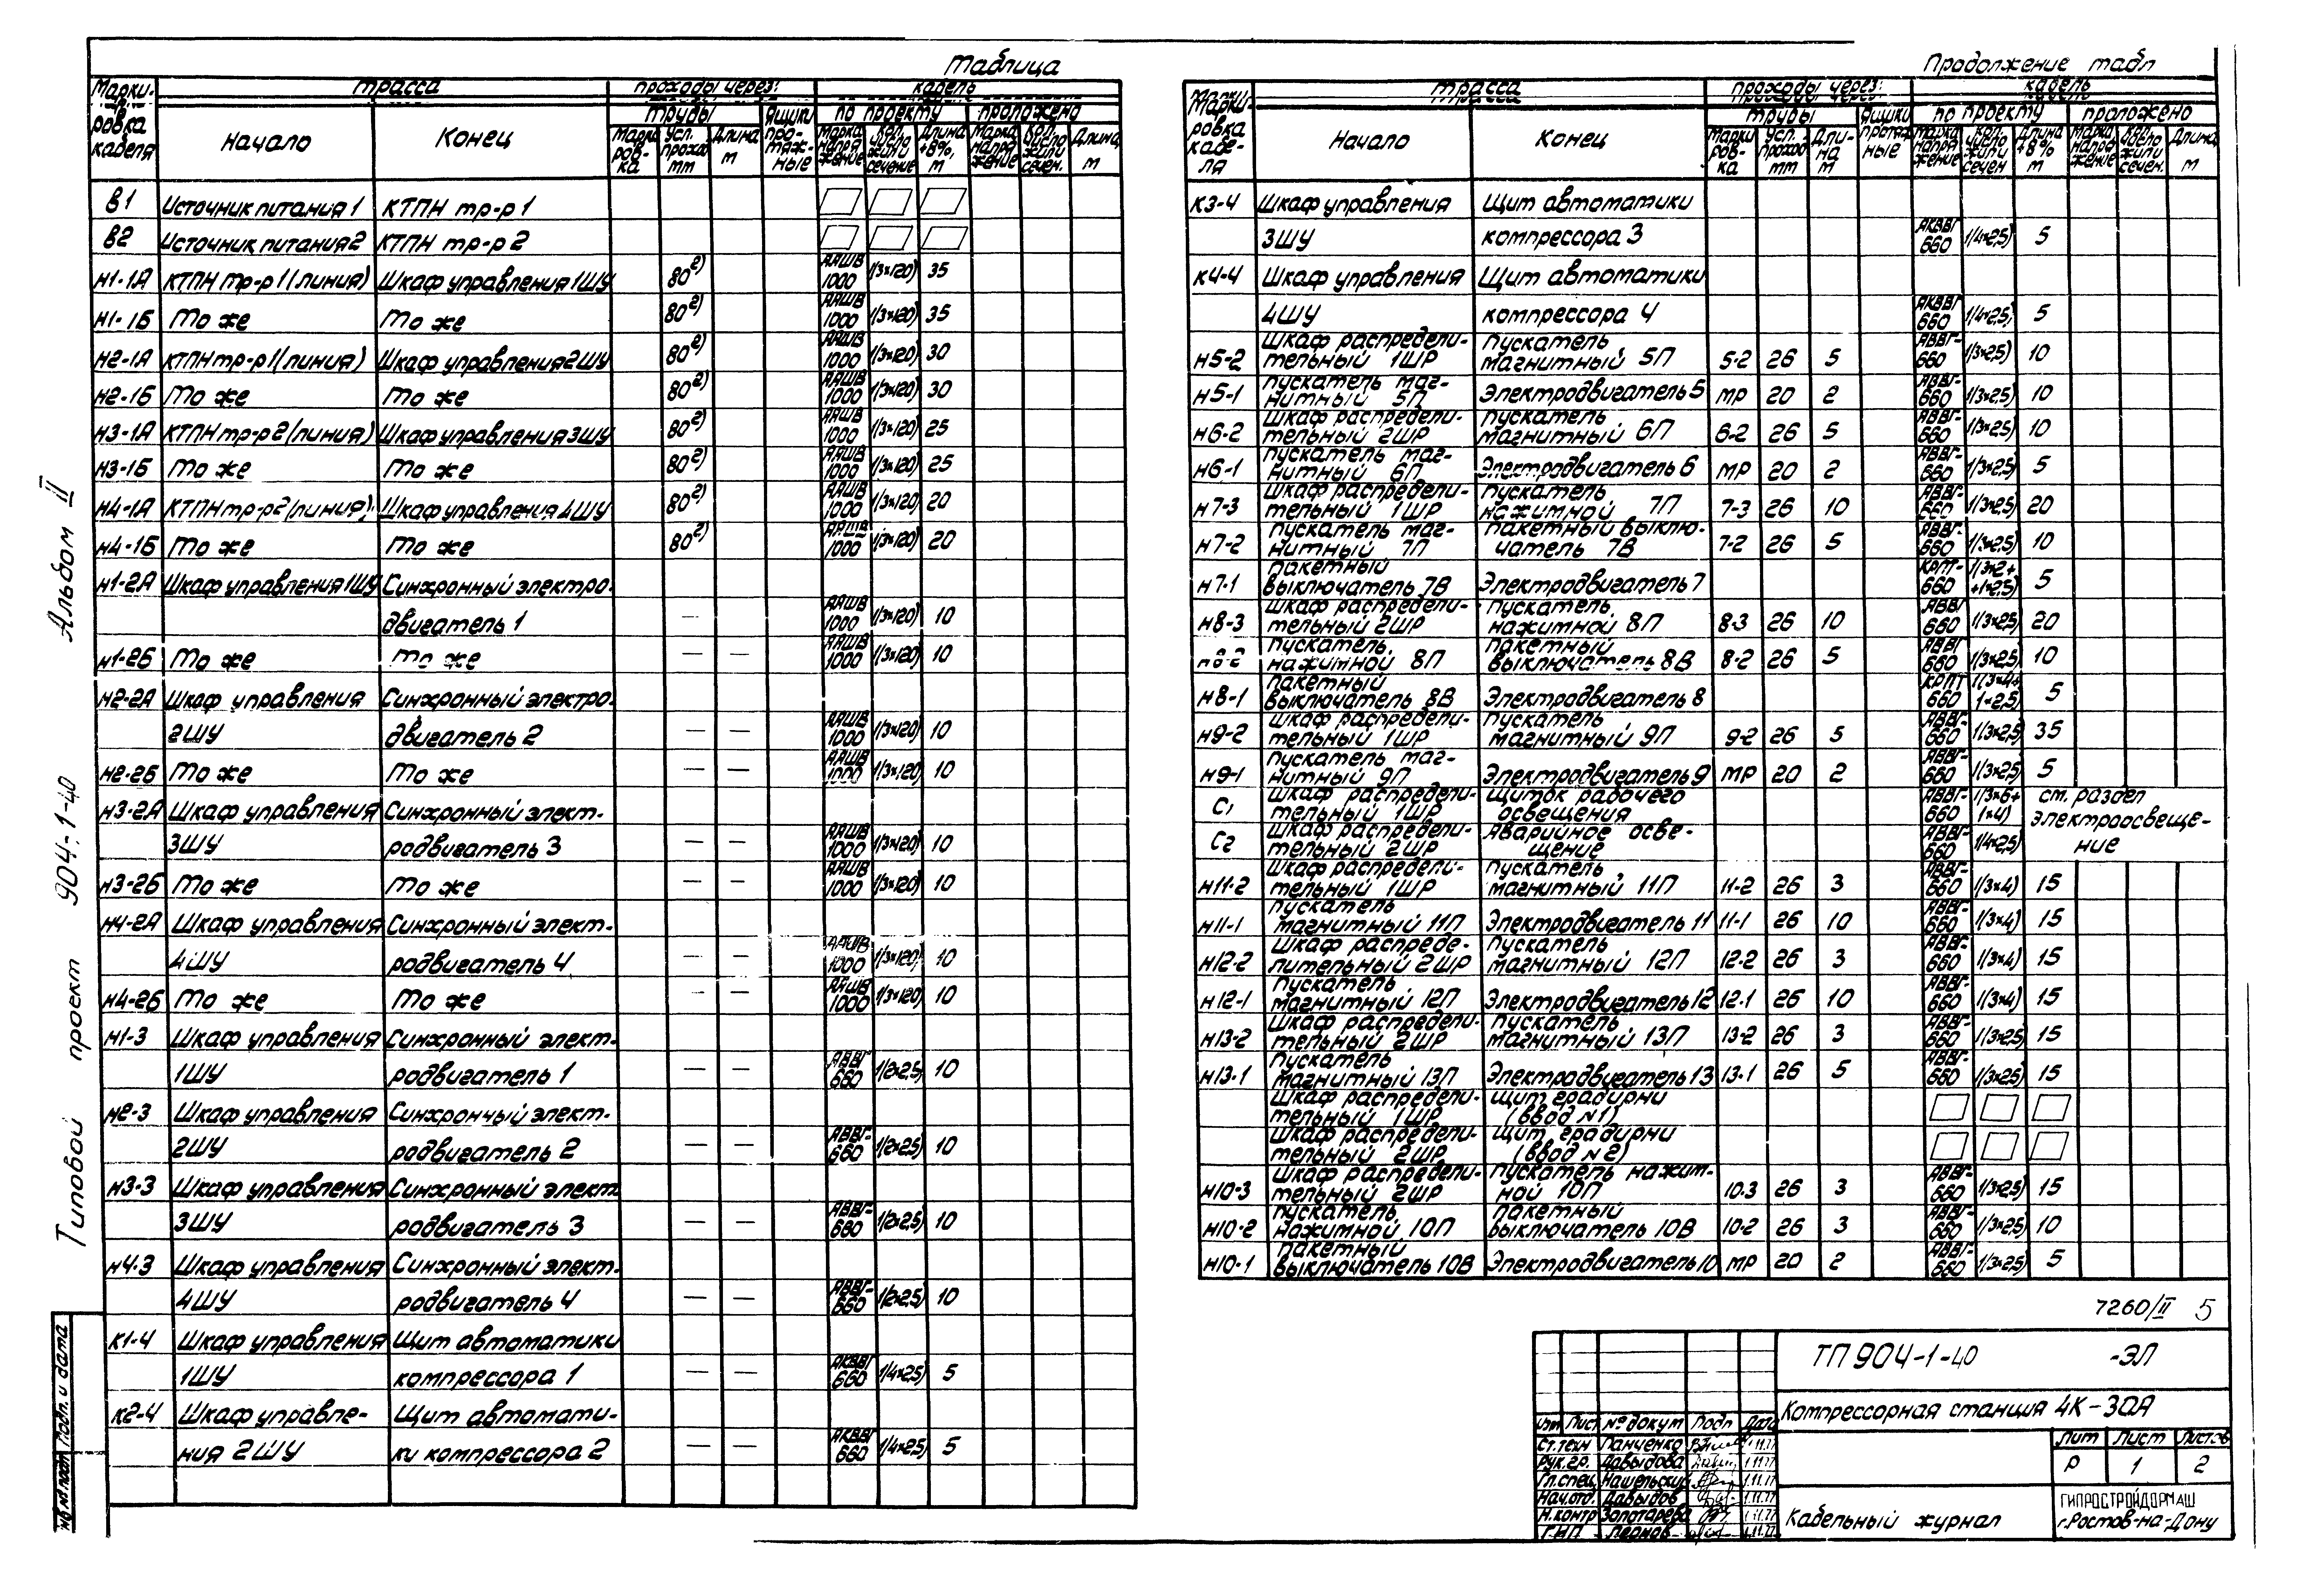 Таблица
Марки-ровка кабеля | Трасса | проходы через: | кабель
Начало | Конец | трубы | ящики протяж-ные | по проекту | проложено
Марки-ров-ка | Усл. проход мм | Длина м | Марка напря-жение | Кол. число жил и сечение | Длина +8%, м | Марка напря-жение | Кол. число жил и сечен. | Длина, м
В1 Источник питания 1 КТПН тр-р 1
В2 Источник питания 2 КТПН тр-р 2
Н1-1А КТПН тр-р 1 (линия) Шкаф управления 1ШУ 80²⁾ ААШВ 1000 1(3×120) 35
Н1-1Б То же То же 80²⁾ ААШВ 1000 1(3×120) 35
Н2-1А КТПН тр-р 1 (линия) Шкаф управления 2ШУ 80²⁾ ААШВ 1000 1(3×120) 30
Н2-1Б То же То же 80²⁾ ААШВ 1000 1(3×120) 30
Н3-1А КТПН тр-р 2 (линия) Шкаф управления 3ШУ 80²⁾ ААШВ 1000 1(3×120) 25
Н3-1Б То же То же 80²⁾ ААШВ 1000 1(3×120) 25
Н4-1А КТПН тр-р 2 (линия) Шкаф управления 4ШУ 80²⁾ ААШВ 1000 1(3×120) 20
Н4-1Б То же То же 80²⁾ ААШВ 1000 1(3×120) 20
Н1-2А Шкаф управления 1ШУ Синхронный электро-
двигатель 1 — ААШВ 1000 1(3×120) 10
Н1-2Б То же То же — — ААШВ 1000 1(3×120) 10
Н2-2А Шкаф управления Синхронный электро-
2ШУ двигатель 2 — — ААШВ 1000 1(3×120) 10
Н2-2Б То же То же — — ААШВ 1000 1(3×120) 10
Н3-2А Шкаф управления Синхронный элект-
3ШУ родвигатель 3 — — ААШВ 1000 1(3×120) 10
Н3-2Б То же То же — — ААШВ 1000 1(3×120) 10
Н4-2А Шкаф управления Синхронный элект-
4ШУ родвигатель 4 — — ААШВ 1000 1(3×120) 10
Н4-2Б То же То же — — ААШВ 1000 1(3×120) 10
Н1-3 Шкаф управления Синхронный элект-
1ШУ родвигатель 1 — — АВВГ-660 1(2×2,5) 10
Н2-3 Шкаф управления Синхронный элект-
2ШУ родвигатель 2 — — АВВГ-660 1(2×2,5) 10
Н3-3 Шкаф управления Синхронный элект-
3ШУ родвигатель 3 — — АВВГ-660 1(2×2,5) 10
Н4-3 Шкаф управления Синхронный элект-
4ШУ родвигатель 4 — — АВВГ-660 1(2×2,5) 10
К1-4 Шкаф управления Щит автоматики
1ШУ компрессора 1 — — АКВВГ 660 1(4×2,5) 5
К2-4 Шкаф управле- Щит автомати-
ния 2ШУ ки компрессора 2 — — АКВВГ 660 1(4×2,5) 5
Продолжение табл
Марки-ровка кабе-ля | Трасса | проходы через: | кабель
Начало | Конец | трубы | ящики протяж-ные | по проекту | проложено
Марки-ров-ка | Усл. проход мм | Дли-на м | Марка напря-жение | Кол. число жил и сечен | Длина +8% м | Марка напря-жение | Кол. число жил и сечен. | Длина, м
К3-4 Шкаф управления Щит автоматики
3ШУ компрессора 3 АКВВГ 660 1(4×2,5) 5
К4-4 Шкаф управления Щит автоматики
4ШУ компрессора 4 АКВВГ 660 1(4×2,5) 5
Н5-2 Шкаф распредели-тельный 1ШР Пускатель магнитный 5П 5-2 26 5 АВВГ-660 1(3×2,5) 10
Н5-1 Пускатель маг-нитный 5П Электродвигатель 5 МР 20 2 АВВГ-660 1(3×2,5) 10
Н6-2 Шкаф распредели-тельный 2ШР Пускатель магнитный 6П 6-2 26 5 АВВГ-660 1(3×2,5) 10
Н6-1 Пускатель маг-нитный 6П Электродвигатель 6 МР 20 2 АВВГ-660 1(3×2,5) 5
Н7-3 Шкаф распредели-тельный 1ШР Пускатель нажимной 7П 7-3 26 10 АВВГ-660 1(3×2,5) 20
Н7-2 Пускатель маг-нитный 7П Пакетный выклю-чатель 7В 7-2 26 5 АВВГ-660 1(3×2,5) 10
Н7-1 Пакетный выключатель 7В Электродвигатель 7 КРПТ-660 1(3×2+ +1×2,5) 5
Н8-3 Шкаф распредели-тельный 2ШР Пускатель нажимной 8П 8-3 26 10 АВВГ 660 1(3×2,5) 20
Н8-2 Пускатель нажимной 8П Пакетный выключатель 8В 8-2 26 5 АВВГ 660 1(3×2,5) 10
Н8-1 Пакетный выключатель 8В Электродвигатель 8 КРПТ 660 1(3×4+ 1×2,5) 5
Н9-2 Шкаф распредели-тельный 1ШР Пускатель магнитный 9П 9-2 26 5 АВВГ-660 1(3×2,5) 35
Н9-1 Пускатель маг-нитный 9П Электродвигатель 9 МР 20 2 АВВГ-660 1(3×2,5) 5
С1 Шкаф распредели-тельный 1ШР Щиток рабочего освещения АВВГ-660 1(3×6+ 1×4) см. раздел
С2 Шкаф распредели-тельный 2ШР Аварийное осве-щение АВВГ-660 1(4×2,5) электроосвеще-ние
Н11-2 Шкаф распредели-тельный 1ШР Пускатель магнитный 11П 11-2 26 3 АВВГ-660 1(3×4) 15
Н11-1 Пускатель магнитный 11П Электродвигатель 11 11-1 26 10 АВВГ-660 1(3×4) 15
Н12-2 Шкаф распреде-лительный 2ШР Пускатель магнитный 12П 12-2 26 3 АВВГ-660 1(3×4) 15
Н12-1 Пускатель магнитный 12П Электродвигатель 12 12-1 26 10 АВВГ-660 1(3×4) 15
Н13-2 Шкаф распредели-тельный 2ШР Пускатель магнитный 13П 13-2 26 3 АВВГ-660 1(3×2,5) 15
Н13-1 Пускатель магнитный 13П Электродвигатель 13 13-1 26 5 АВВГ-660 1(3×2,5) 15
Шкаф распредели-тельный 1ШР Щит градирни (ввод №1)
Шкаф распредели-тельный 2ШР Щит градирни (ввод №2)
Н10-3 Шкаф распредели-тельный 2ШР Пускатель нажим-ной 10П 10-3 26 3 АВВГ-660 1(3×2,5) 15
Н10-2 Пускатель нажимной 10П Пакетный выключатель 10В 10-2 26 3 АВВГ-660 1(3×2,5) 10
Н10-1 Пакетный выключатель 10В Электродвигатель 10 МР 20 2 АВВГ-660 1(3×2,5) 5
7260/II 5
ТП 904-1-40 -ЭЛ
Компрессорная станция 4К-30А
Изм Лист № докум Подп Дата
Ст.техн Панченко 1.11.77
Рук.гр. Давыдова 1.11.77
Гл.спец Нашельский 1.11.77
Нач.отд. Давыдов 1.11.77
Н.контр Золотарева 1.11.77
ГИП 1.11.77
Лит Лист Листов
Р 1 2
Кабельный журнал
ГИПРОСТРОЙДОРМАШ
г.Ростов-на-Дону
Типовой проект 904-1-40 Альбом II
Инв.№ подл Подп. и дата